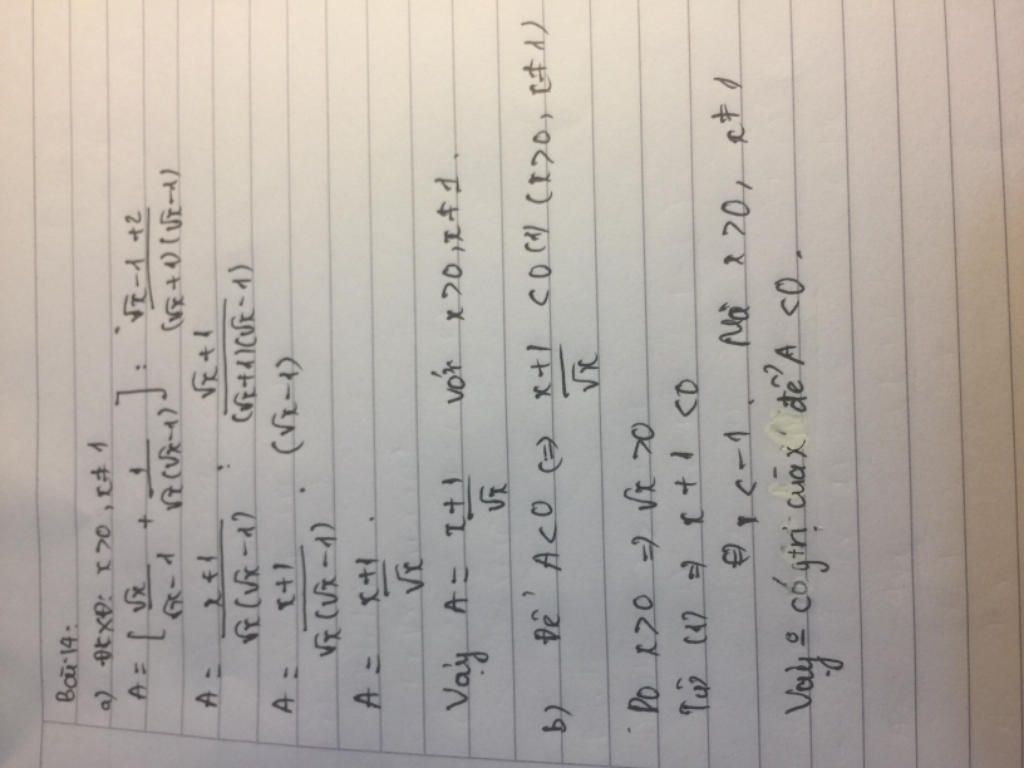 Bài 14:
a) ĐKXĐ: x>0, x≠1
A = [√x/(√x-1) + 1/(√x(√x-1))] : (√x-1+2)/((√x+1)(√x-1))
A = (x+1)/(√x(√x-1)) : (√x+1)/((√x+1)(√x-1))
A = (x+1)/(√x(√x-1)) . (√x-1)
A = (x+1)/√x .
Vậy A = (x+1)/√x với x>0, x≠1.
b) Để A<0 (=> (x+1)/√x <0 (1) (x>0, x≠1)
Do x>0 => √x >0
Từ (1) => x+1 <0
⇔ x<-1. Mà x>0, x≠1
Vậy có gtrị của x để A <0.